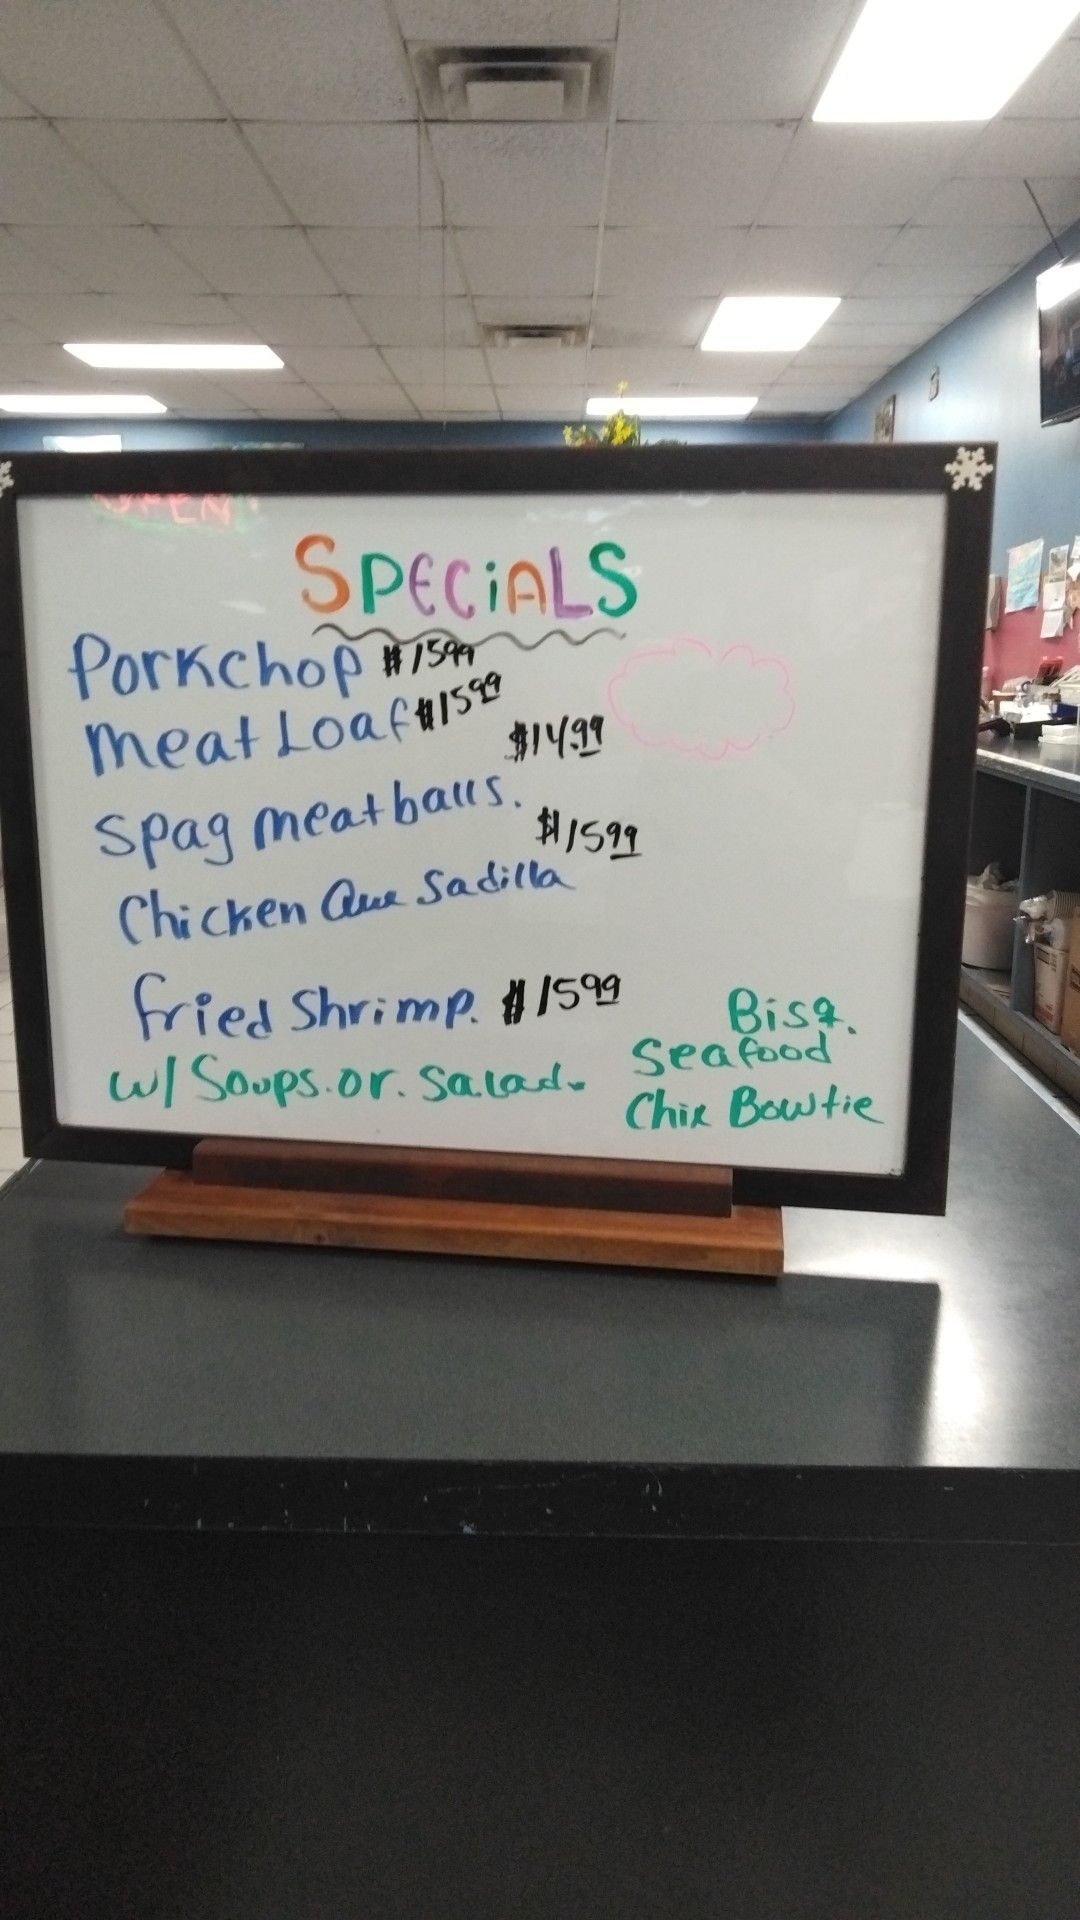 SPECiALS
Porkchop $1599
Meat Loaf $1599
$14.99
Spag meatballs.
$1599
Chicken Que Sadilla
fried Shrimp. $1599
w/ Soups.or. Salad.
Bisq.
Seafood
Chix Bowtie